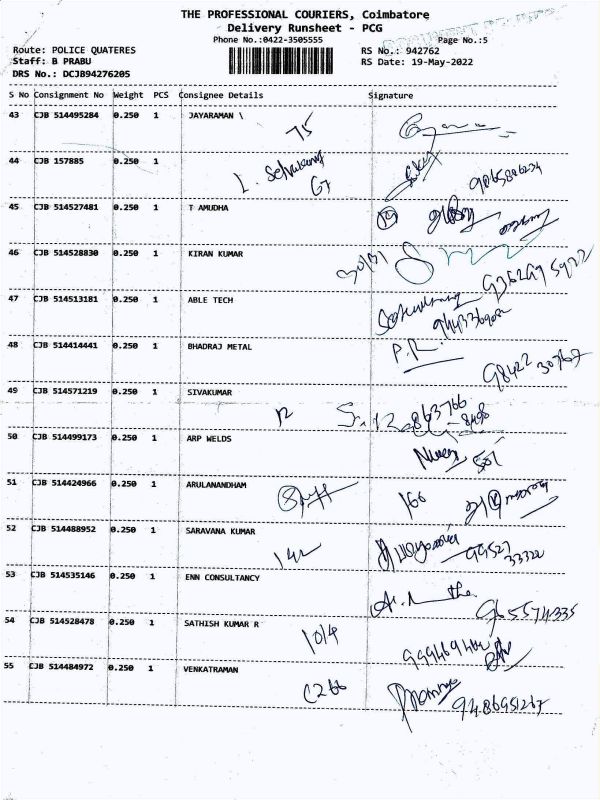 THE PROFESSIONAL COURIERS, Coimbatore
Delivery Runsheet - PCG
Phone No.:0422-3505555
Page No.:5
Route: POLICE QUATERES
RS No.: 942762
Staff: B PRABU
RS Date: 19-May-2022
DRS No.: DCJB94276205
S No Consignment No Weight PCS Consignee Details Signature
43 CJB 514495284 0.250 1 JAYARAMAN \
75
44 CJB 157885 0.250 1
67
45 CJB 514527481 0.250 1 T AMUDHA
19
46 CJB 514528830 0.250 1 KIRAN KUMAR
47 CJB 514513181 0.250 1 ABLE TECH
48 CJB 514414441 0.250 1 BHADRAJ METAL
P.R.
98422 30767
49 CJB 514571219 0.250 1 SIVAKUMAR
12
50 CJB 514499173 0.250 1 ARP WELDS
51 CJB 514424966 0.250 1 ARULANANDHAM
166
52 CJB 514488952 0.250 1 SARAVANA KUMAR
142
99527
33322
53 CJB 514535146 0.250 1 ENN CONSULTANCY
54 CJB 514528478 0.250 1 SATHISH KUMAR R
10/4
55 CJB 514484972 0.250 1 VENKATRAMAN
C266
9486951267